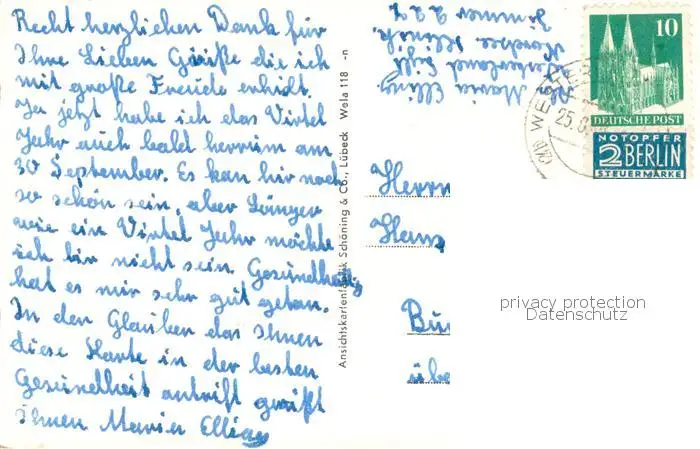 Recht herzlichen Dank für
Ihre Lieben Grüße die ich
mit große Freude erhilt.
Ja jetzt habe ich das Virtel
Jahr auch bald herrum am
30 September. Es kan hir noch
so schön sein, aber Länger
wie ein Virtel Jahr möchte
ich hir nicht sein. Gesundheitig
hat es mir sehr gut getan.
In den Glauben das Ihnen
diese Karte in der besten
Gesundheit antrift grüßt
Ihnen Maria Elling
Ansichtskartenfabrik Schöning & Co., Lübeck Wela 118 -n
Maria Elling
Westerland Sylt
Nordsee Klinik
Zimmer 222
10
DEUTSCHE POST
NOTOPFER
2 BERLIN
STEUERMARKE
WES
25.8
Herrn
Hans
Bu
übe
privacy protection
Datenschutz